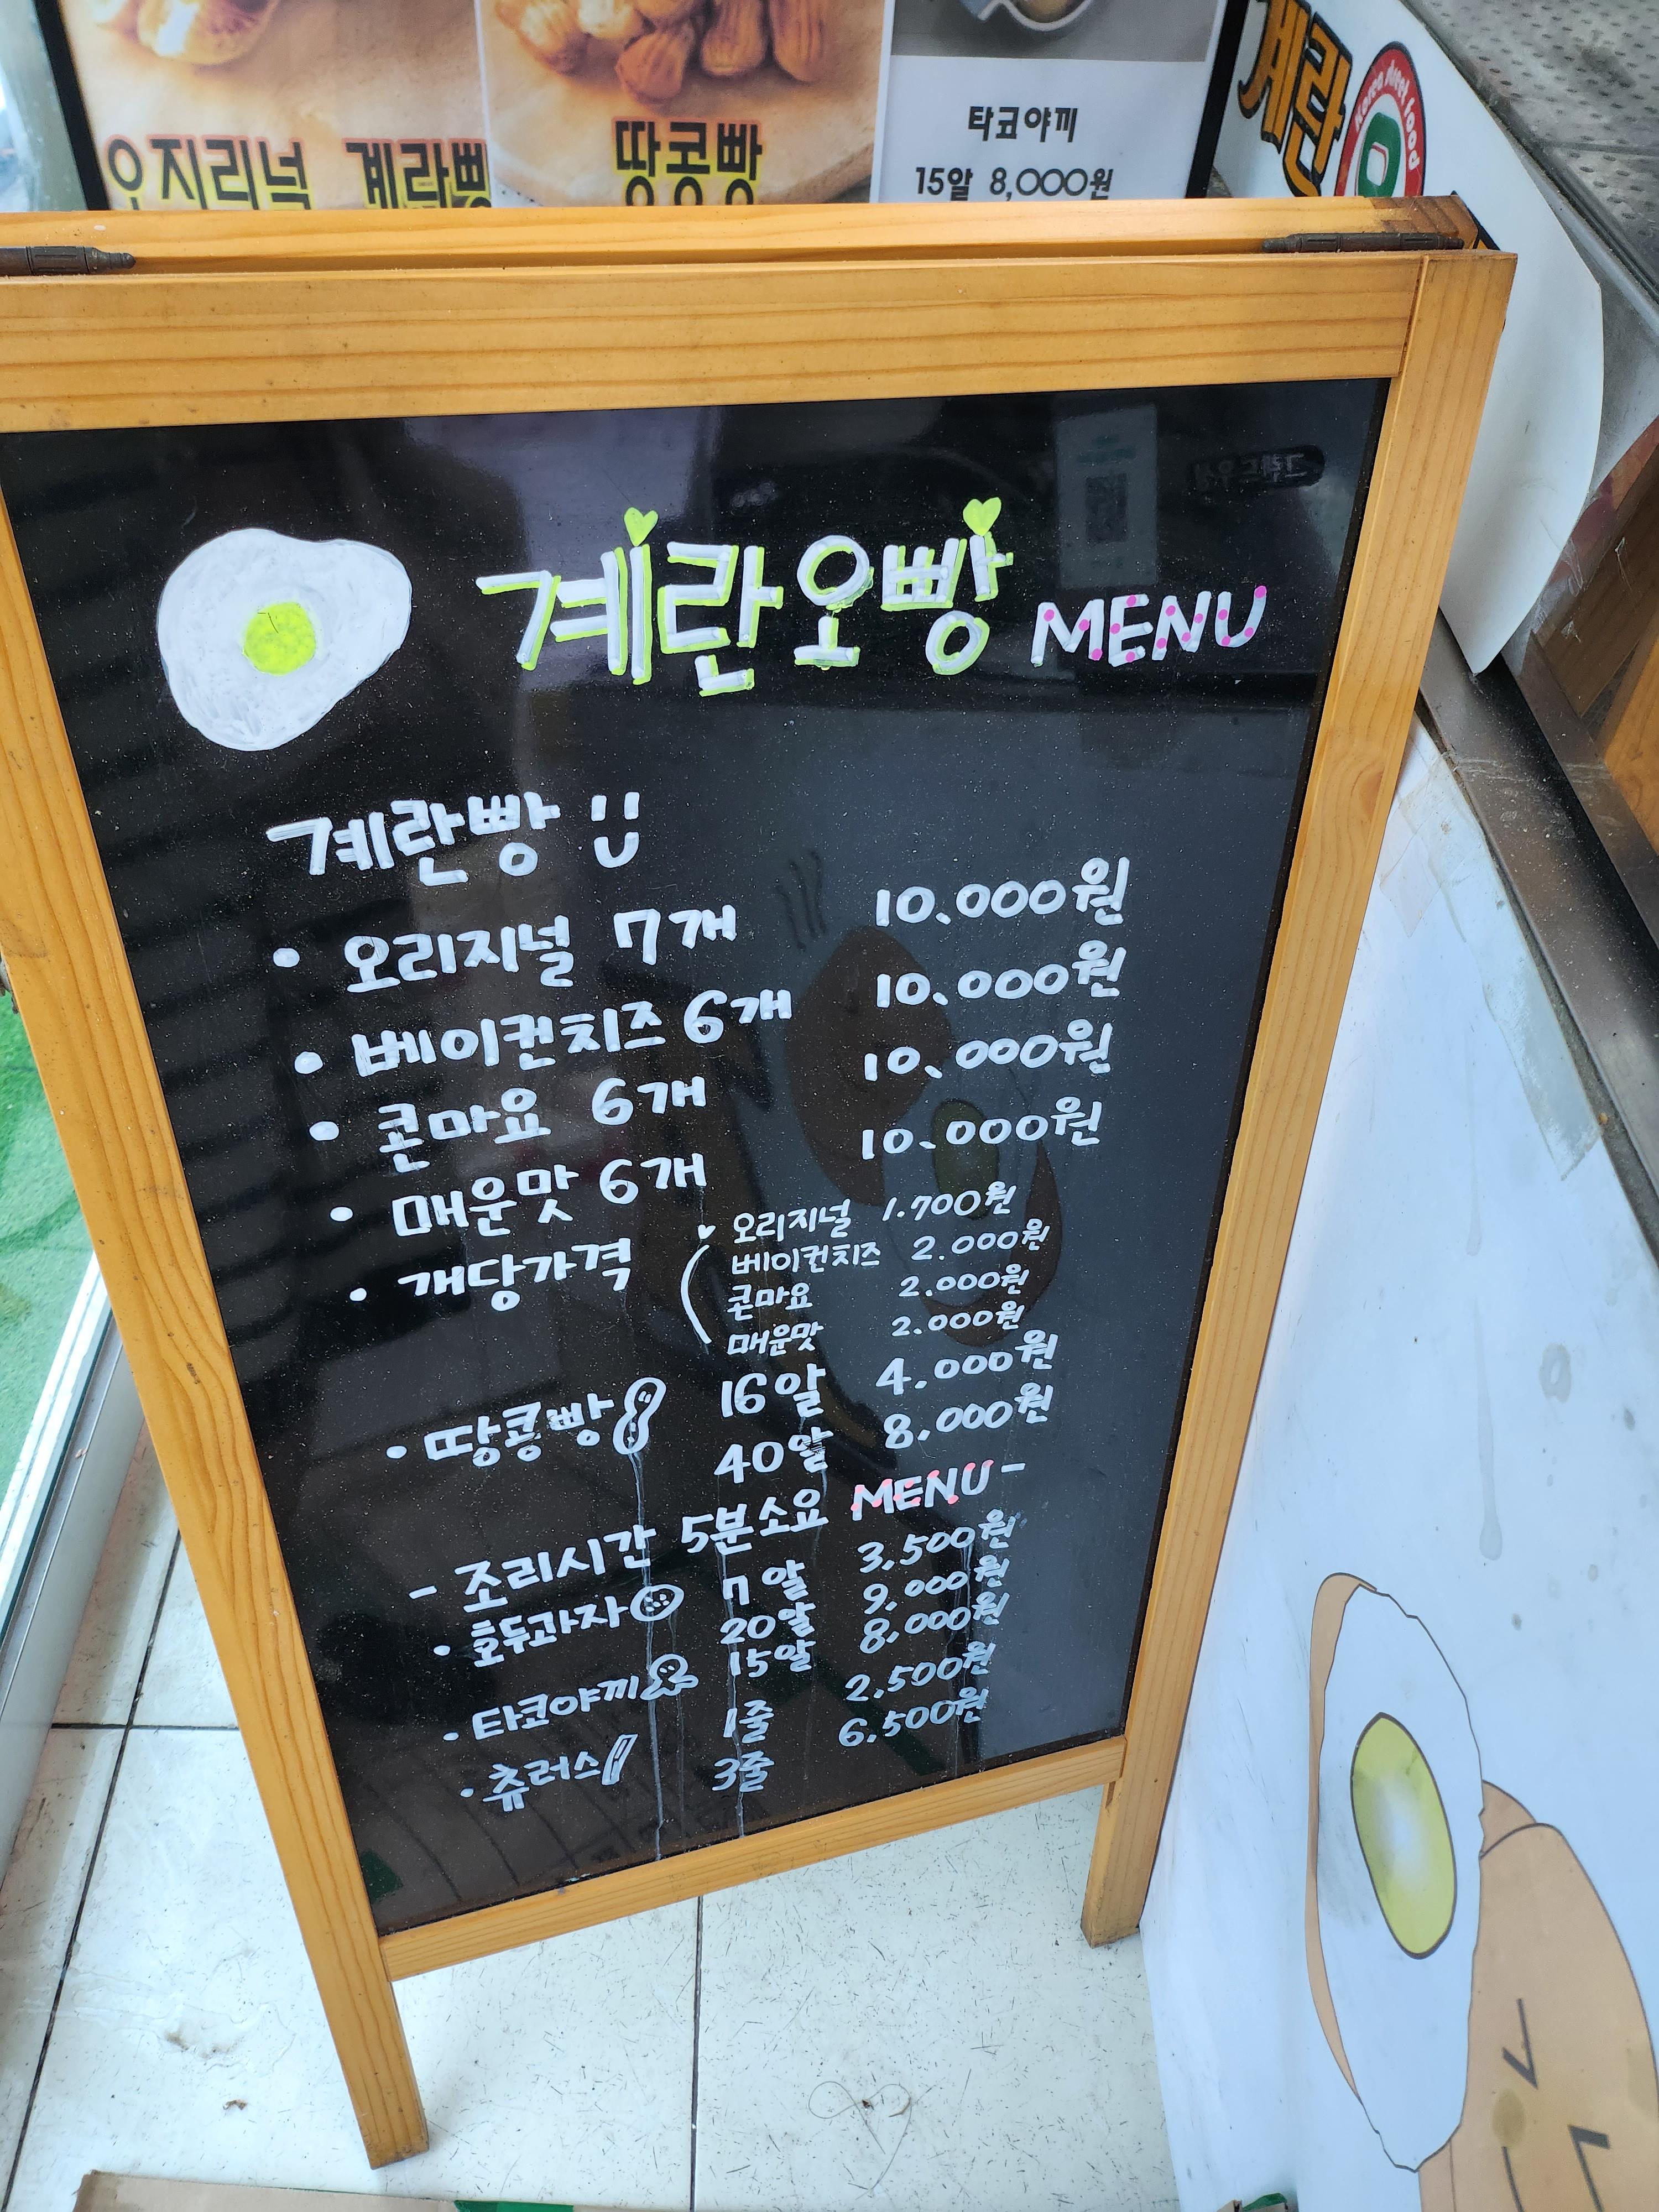 오리지널 계란빵
땅콩빵
타코야끼
15알 8,000원
계란
Korea street food
계란오빵 MENU
계란빵
• 오리지널 7개 10.000원
• 베이컨치즈 6개 10.000원
• 콘마요 6개 10.000원
• 매운맛 6개 10.000원
• 개당가격
오리지널 1.700원
베이컨치즈 2.000원
콘마요 2.000원
매운맛 2.000원
• 땅콩빵 16알 4.000원
40알 8.000원
- 조리시간 5분소요 MENU -
• 호두과자 7알 3.500원
20알 9.000원
• 타코야끼 15알 8.000원
• 츄러스 1줄 2.500원
3줄 6.500원